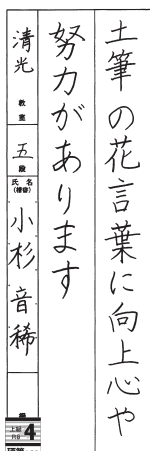 土筆の花言葉に向上心や
努力があります
清光 教室 五 段 氏名(楷書) 小杉 音稀
4